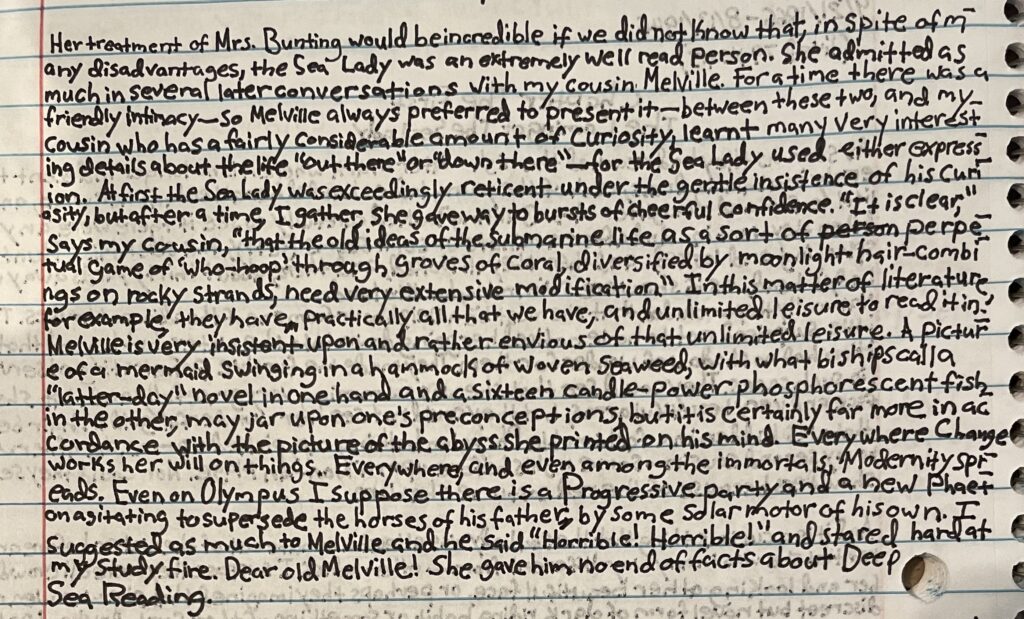 Her treatment of Mrs. Bunting would be incredible if we did not know that, in spite of m-
any disadvantages, the Sea Lady was an extremely well read person. She admitted as
much in several later conversations with my cousin Melville. For a time there was a
friendly intimacy—so Melville always preferred to present it—between these two, and my
cousin who has a fairly considerable amount of curiosity, learnt many very interest-
ing details about the life "out there" or "down there"—for the Sea Lady used either express-
ion. At first the Sea Lady was exceedingly reticent under the gentle insistence of his curi-
osity, but after a time, I gather, she gave way to bursts of cheerful confidence. "It is clear,"
says my cousin, "that the old ideas of the submarine life as a sort of person perpe-
tual game of 'who-hoop' through groves of coral, diversified by moonlight hair-combi-
ngs on rocky strands, need very extensive modification." In this matter of literature,
for example, they have practically all that we have, and unlimited leisure to read it in.
Melville is very insistent upon and rather envious of that unlimited leisure. A pictur-
e of a mermaid swinging in a hammock of woven seaweed, with what bishops call a
"latter-day" novel in one hand and a sixteen candle-power phosphorescent fish
in the other, may jar upon one's preconceptions, but it is certainly far more in ac-
cordance with the picture of the abyss she printed on his mind. Everywhere Change
works her will on things. Everywhere, and even among the immortals, Modernity spr-
eads. Even on Olympus I suppose there is a Progressive party and a new Phaet-
on agitating to supersede the horses of his father, by some solar motor of his own. I
suggested as much to Melville and he said "Horrible! Horrible!" and stared hard at
my study fire. Dear old Melville! She gave him no end of facts about Deep
Sea Reading.